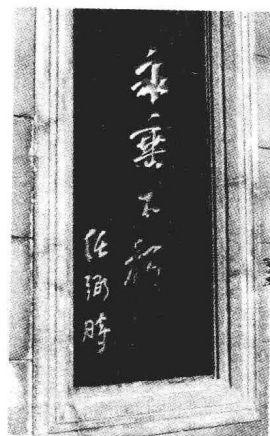 永垂不朽
任弼時